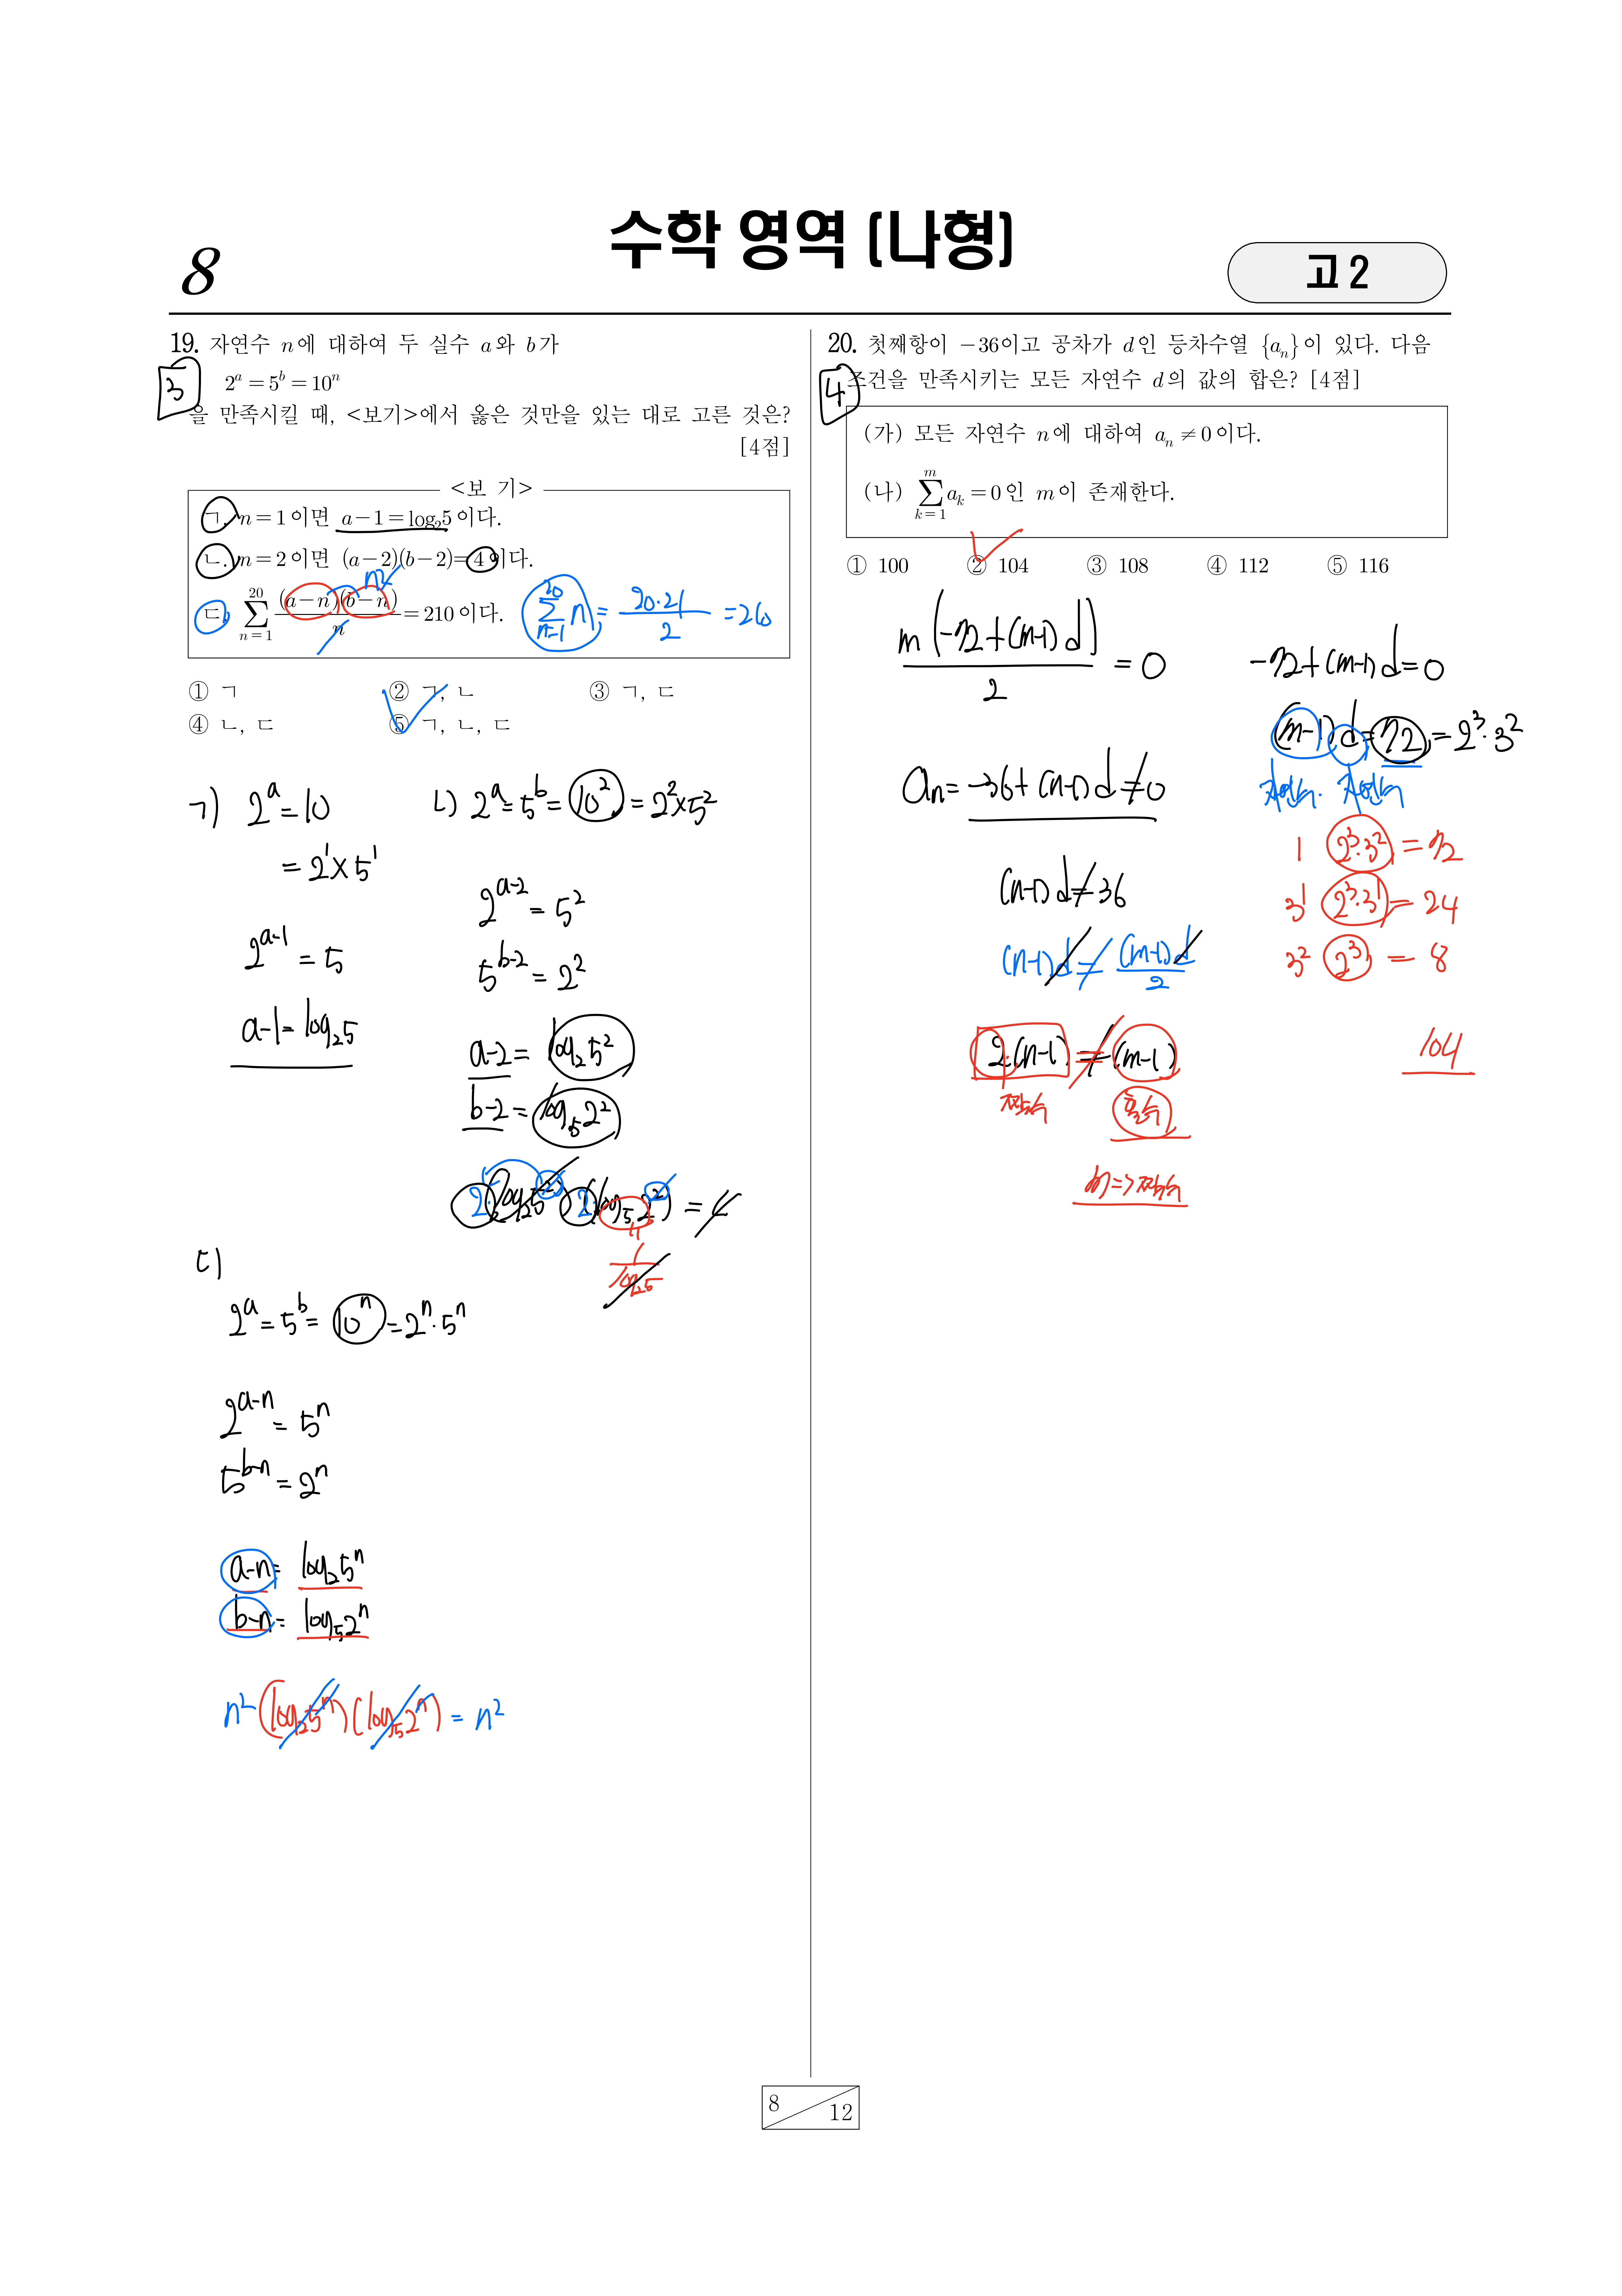 8
수학 영역 (나형)
고 2
19. 자연수 n에 대하여 두 실수 a와 b가
2^a = 5^b = 10^n
을 만족시킬 때, <보기>에서 옳은 것만을 있는 대로 고른 것은?
[4점]
3
<보 기>
ㄱ. n = 1이면 a − 1 = log₂5이다.
ㄴ. n = 2이면 (a − 2)(b − 2) = 4이다.
ㄷ. ∑_{n=1}^{20} (a − n)(b − n)/n = 210이다.
n²
∑_{n=1}^{20} n = 20·21/2 = 210
① ㄱ ② ㄱ, ㄴ ③ ㄱ, ㄷ
④ ㄴ, ㄷ ⑤ ㄱ, ㄴ, ㄷ
ㄱ) 2^a = 10
= 2^1 × 5^1
2^{a-1} = 5
a-1 = log₂5
ㄴ) 2^a = 5^b = 10² = 2² × 5²
2^{a-2} = 5²
5^{b-2} = 2²
a-2 = log₂5²
b-2 = log₅2²
2·(log₂5²) 2(log₅2²) = 4
1/log₂5
ㄷ)
2^a = 5^b = 10^n = 2^n · 5^n
2^{a-n} = 5^n
5^{b-n} = 2^n
a-n = log₂5^n
b-n = log₅2^n
n² (log₂5^n)(log₅2^n) = n²
20. 첫째항이 −36이고 공차가 d인 등차수열 {a_n}이 있다. 다음
조건을 만족시키는 모든 자연수 d의 값의 합은? [4점]
4
(가) 모든 자연수 n에 대하여 a_n ≠ 0이다.
(나) ∑_{k=1}^{m} a_k = 0인 m이 존재한다.
① 100 ② 104 ③ 108 ④ 112 ⑤ 116
m(-72+(m-1)d)/2 = 0
a_n = -36+(n-1)d ≠ 0
(n-1)d ≠ 36
(n-1)d ≠ (m-1)d/2
2·(n-1) ≠ (m-1)
짝수 홀수
m => 짝수
-72+(m-1)d = 0
(m-1)d = 72 = 2³·3²
자연수. 자연수
1 2³·3² = 72
3^1 2³·3^1 = 24
3² 2³ = 8
104
8
12